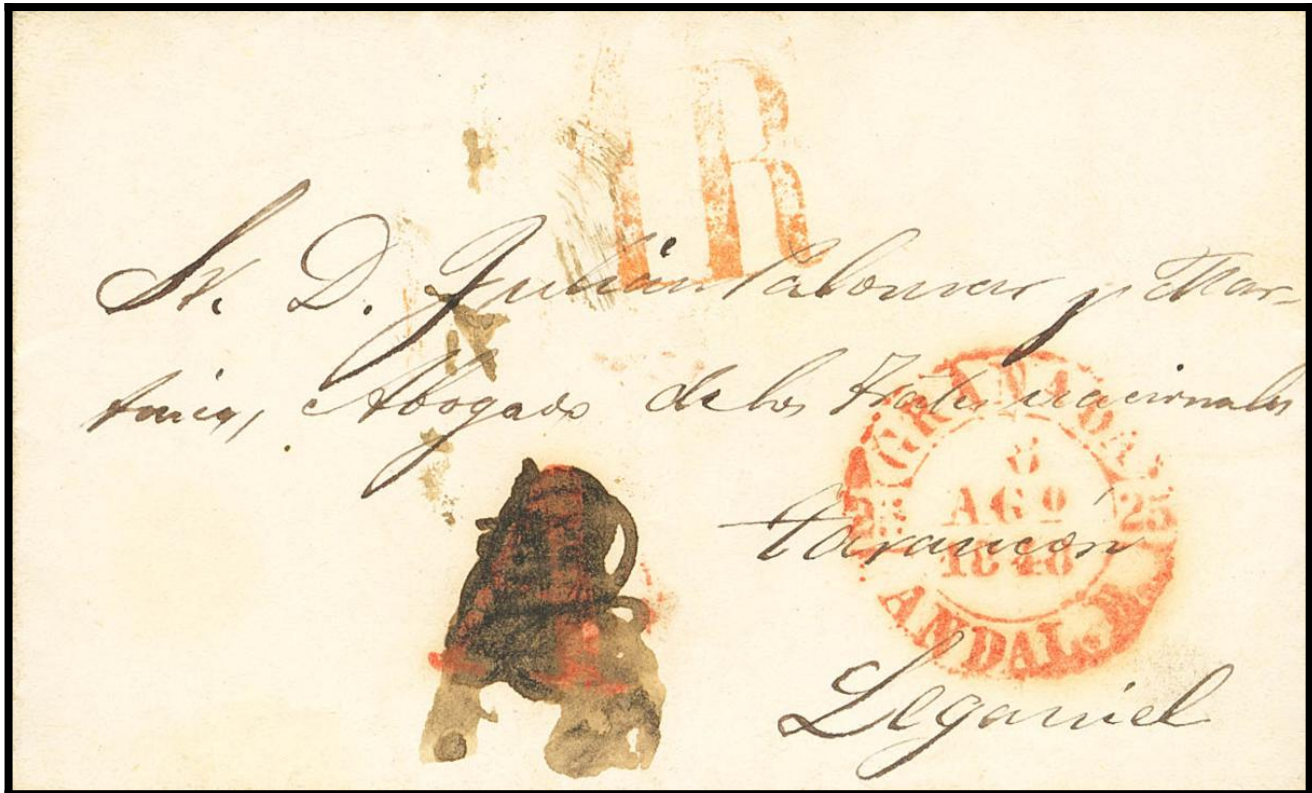 1R
Sr. D. Julián Palomar y Mar-
tinez, Abogado de los Trales nacionales
Tarancón
Leganiel
GRANADA
25 25
8
AGO
1848
ANDAL. B.